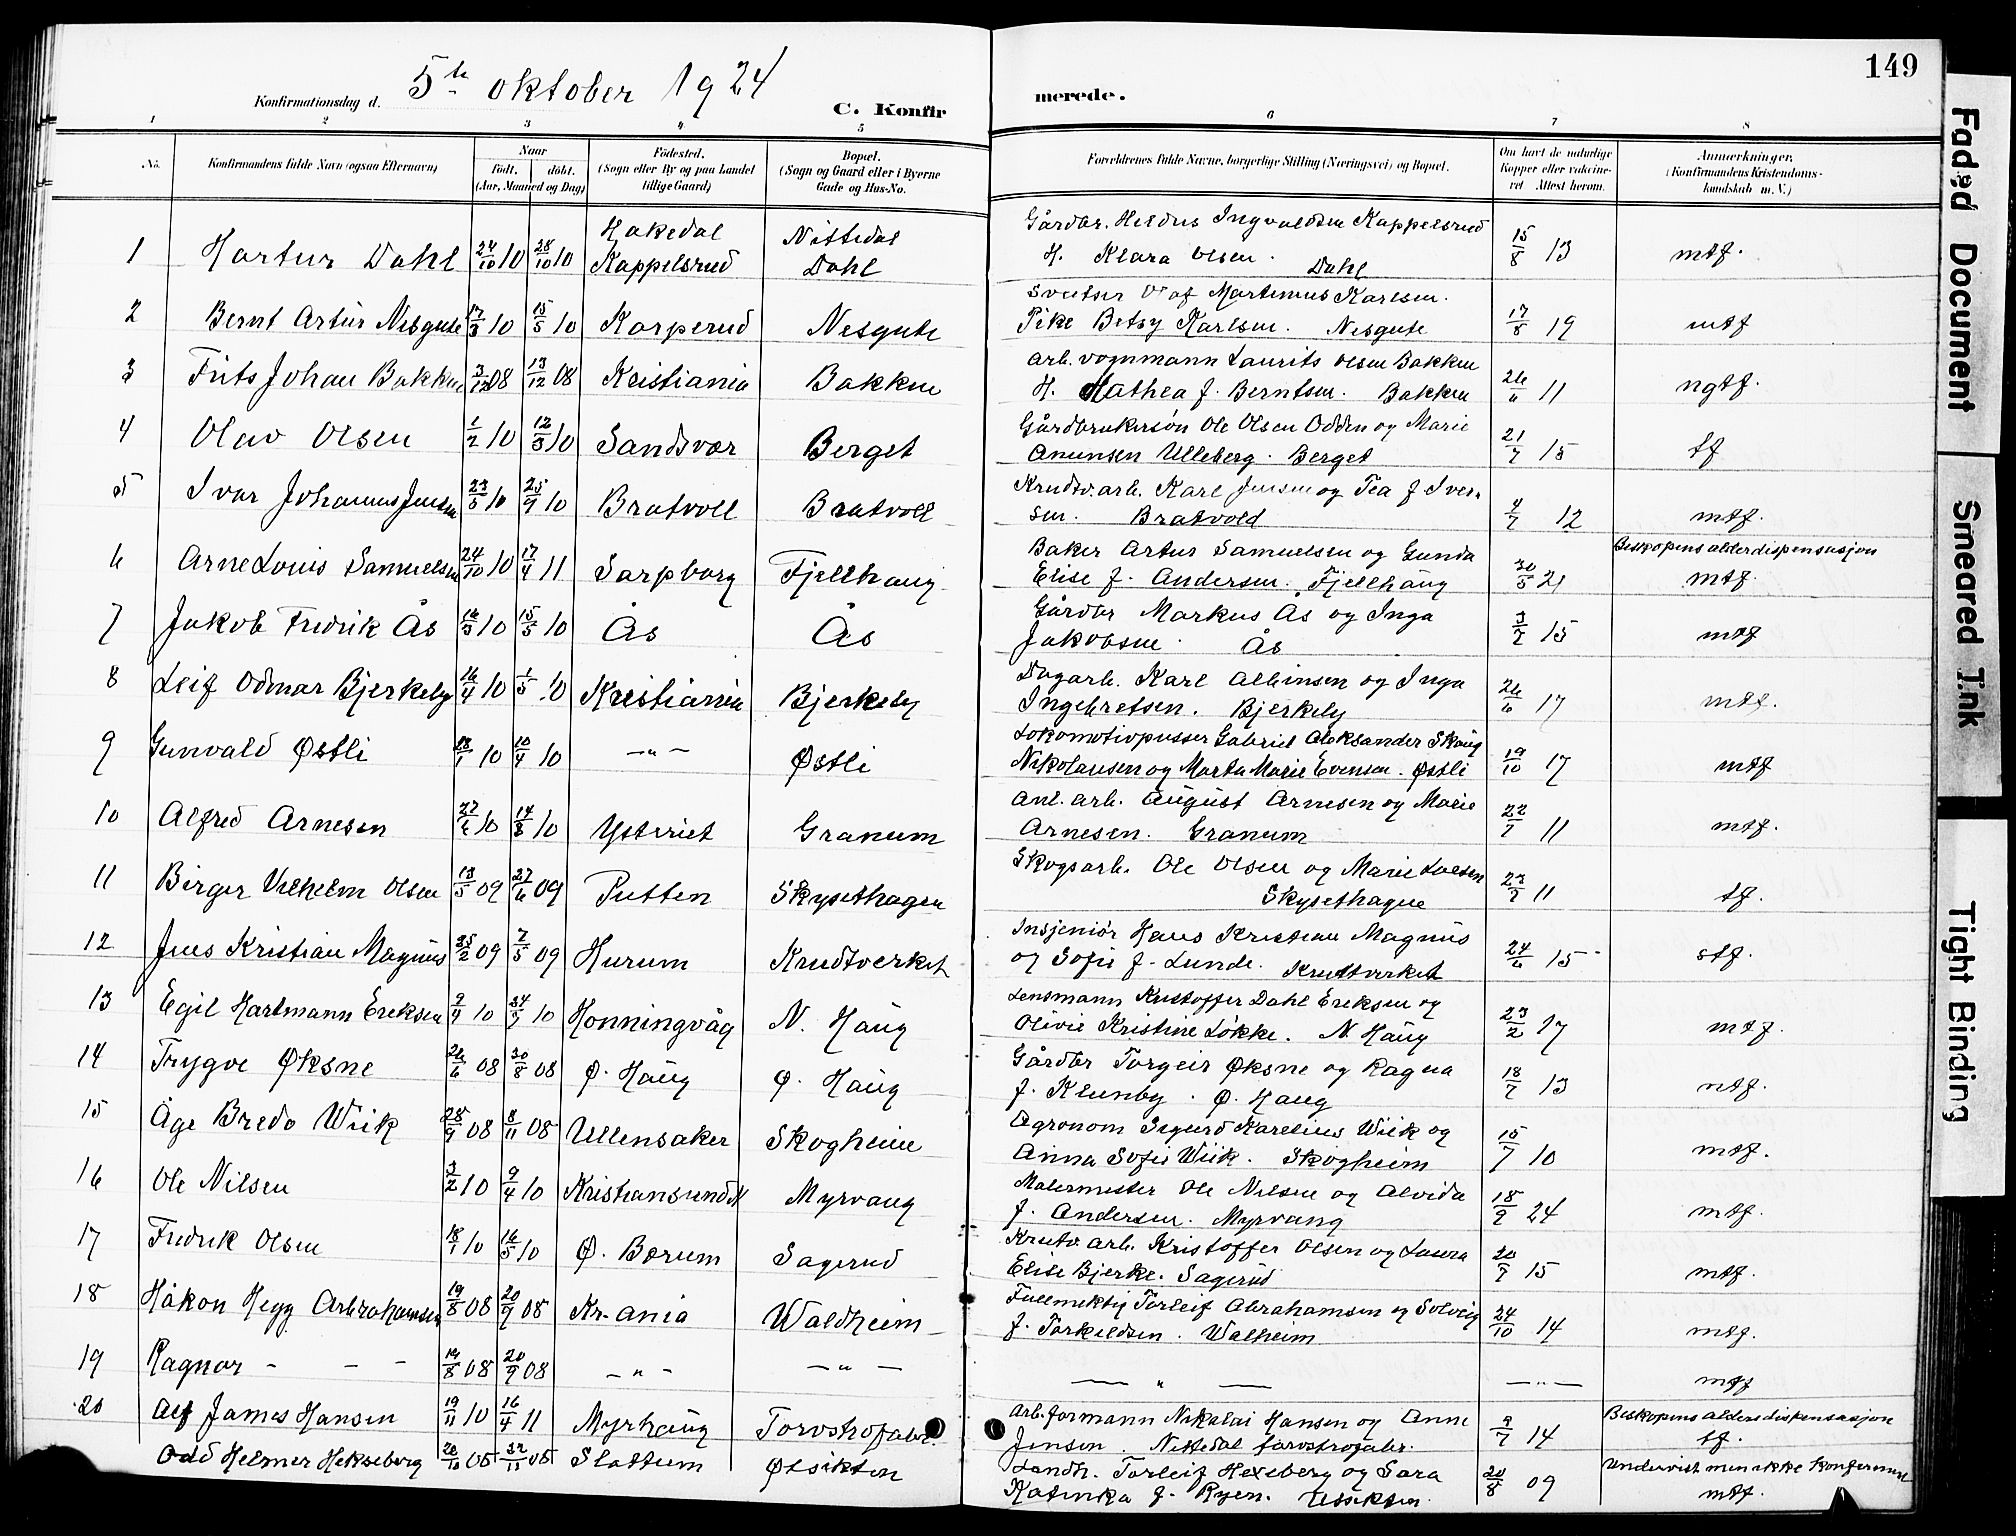 149
5te oktober 1924
Konfirmationsdag d.
C. Konfir merede.
1 2 3 4 5 6 7 8
No.
Konfirmandens fulde Navn (ogsaa Efternavn)
Naar født. døbt. (Aar, Maaned og Dag)
Fødested. (Sogn eller By og paa Landet tillige Gaard)
Bopæl. (Sogn og Gaard eller i Byerne Gade og Hus-No.
Forældrenes fulde Navne, borgerlige Stilling (Næringsvei) og Bopæl.
Om havt de naturlige Kopper eller vaccineret Attest herom.
Anmærkninger. (Konfirmandens Kristendomskundskab m. V.)
1 Hartur Dahl 24/10 10 28/10 10 Hakedal Kappelsrud Nittedal Dahl
Gårdbr. Ingvaldsen Kappelsrud
H. Klara Olsen. Dahl 15/8 13 mtf.
2 Bernt Artur Nesgute 17/3 10 15/5 10 Korperud Nesgute
Sveitser Olaf Martinius Karlsen.
Pike Betsy Karlsen. Nesgute 17/8 19 mtf
3 Frits Johan Bakken 3/12 08 13/12 08 Kristiania Bakken
Arb. vognmann Laurits Olsen Bakken
H. Mathea f. Berntsen. Bakken 11 ngtf.
4 Olav Olsen 1/2 10 12/3 10 Sandsvær Berget
Gårdbrukersøn Ole Olsen Odden og Marie
Anunsen Ulleberg. Berget 21/7 15 tf
5 Ivar Johannes Jensen 23/5 10 25/9 10 Bratvoll Bratvoll
Krudtv.arb. Karl Jensen og Tea f Iver-
sen. Bratvold 4/7 12 mtf.
6 Arne Louis Samuelsen 24/10 10 17/4 11 Sarpborg Fjellhaug
Baker Artur Samuelsen og Gunda Biskopens alderdispensasjon
Elise f. Andersen. Fjellhaug 30/5 21 mtf.
7 Jakob Fredrik Ås 16/3 10 15/5 10 Ås Ås
Gårdbr Markus Ås og Inga
Jakobsen. Ås 3/7 15 mtf
8 Leif Odmar Bjerkely 16/4 10 1/5 10 Kristiania Bjerkely
Dagarb. Karl Albinsen og Inga
Ingebretsen. Bjerkely 26/6 17 mtf.
9 Gunvald Østli 10 10/4 10 -"- Østli
Lokomotivpusser Gabriel Aleksander Skaug
Nikolausen og Marta Marie Evensen. Østli 19/10 17 mtf
10 Alfred Arnesen 10 14/8 10 Ysteriet Granum
Anl. arb. August Arnesen og Marie
Arnesen. Granum 22/7 11 mtf.
11 Birger Vilhelm Olsen 13/5 09 27/6 09 Putten Skysethagen
Skogsarb. Ole Olsen og Marie
Skysethagen 11 tf.
12 Jens Kristian Magnus 25/2 09 7/5 09 Hurum Krudtverket
Insjeniør Hans Kristian Magnus
og Sofie f. Lunde. Kruttverket 24/6 15 stf.
13 Egil Hartmann Ereksen 10 10 Honningvåg N. Haug
Lensmann Kristoffer Dahl Ereksen og
Olivie Kristine Løkke. N. Haug 23/2 17 mtf.
14 Trygve Øksne 26/6 08 30/8 08 Ø. Haug Ø. Haug
Gårdbr Torgeir Øksne og Ragna
f. Klunby. Ø. Haug 18/7 13 ntf.
15 Åge Bredo Wiik 28/9 08 8/11 08 Ullensaker Skogheim
Agronom Sigurd Karelius Wiik og
Anna Sofie Wiik. Skogheim 15/7 10 mtf.
16 Ole Nilsen 3/2 10 9/4 10 Kristiansund N Myrvang
Malermester Ole Nilsen og Alvida
f. Andersen. Myrvang 18/9 24 mtf.
17 Fredrik Olsen 18/1 10 16/5 10 Ø. Bærum Sagerud
Krutv. arb. Kristoffer Olsen og Laura
Elise Bjerke. Sagerud 15 mtf.
18 Håkon Hegg Abrahamsen 19/8 08 20/9 08 Kr-ania Waldheim
Fullmektig Torleif Abrahamsen og Solveig
f. Torkildsen. Walheim 24/10 14 mtf.
19 Ragnar - - - 19/8 08 20/9 08 -"- -"-
-"- -"- mtf
20 Alf James Hansen 19/11 10 16/4 11 Myrhaug Torvstrofabr.
Arb.formann Nikolai Hansen og Anne Biskopens aldersdispensasjon
Jensen. Nittedal torvstrofabr. 14 tf.
Odd Helmer Hekseberg 05 05 Slattum
Landh. Torleif Hexeberg og Sara Undervist men ikke konfirmert
Katinka f. Ryen. 20/8 09 mtf.
Faded Document
Smeared Ink
Tight Binding